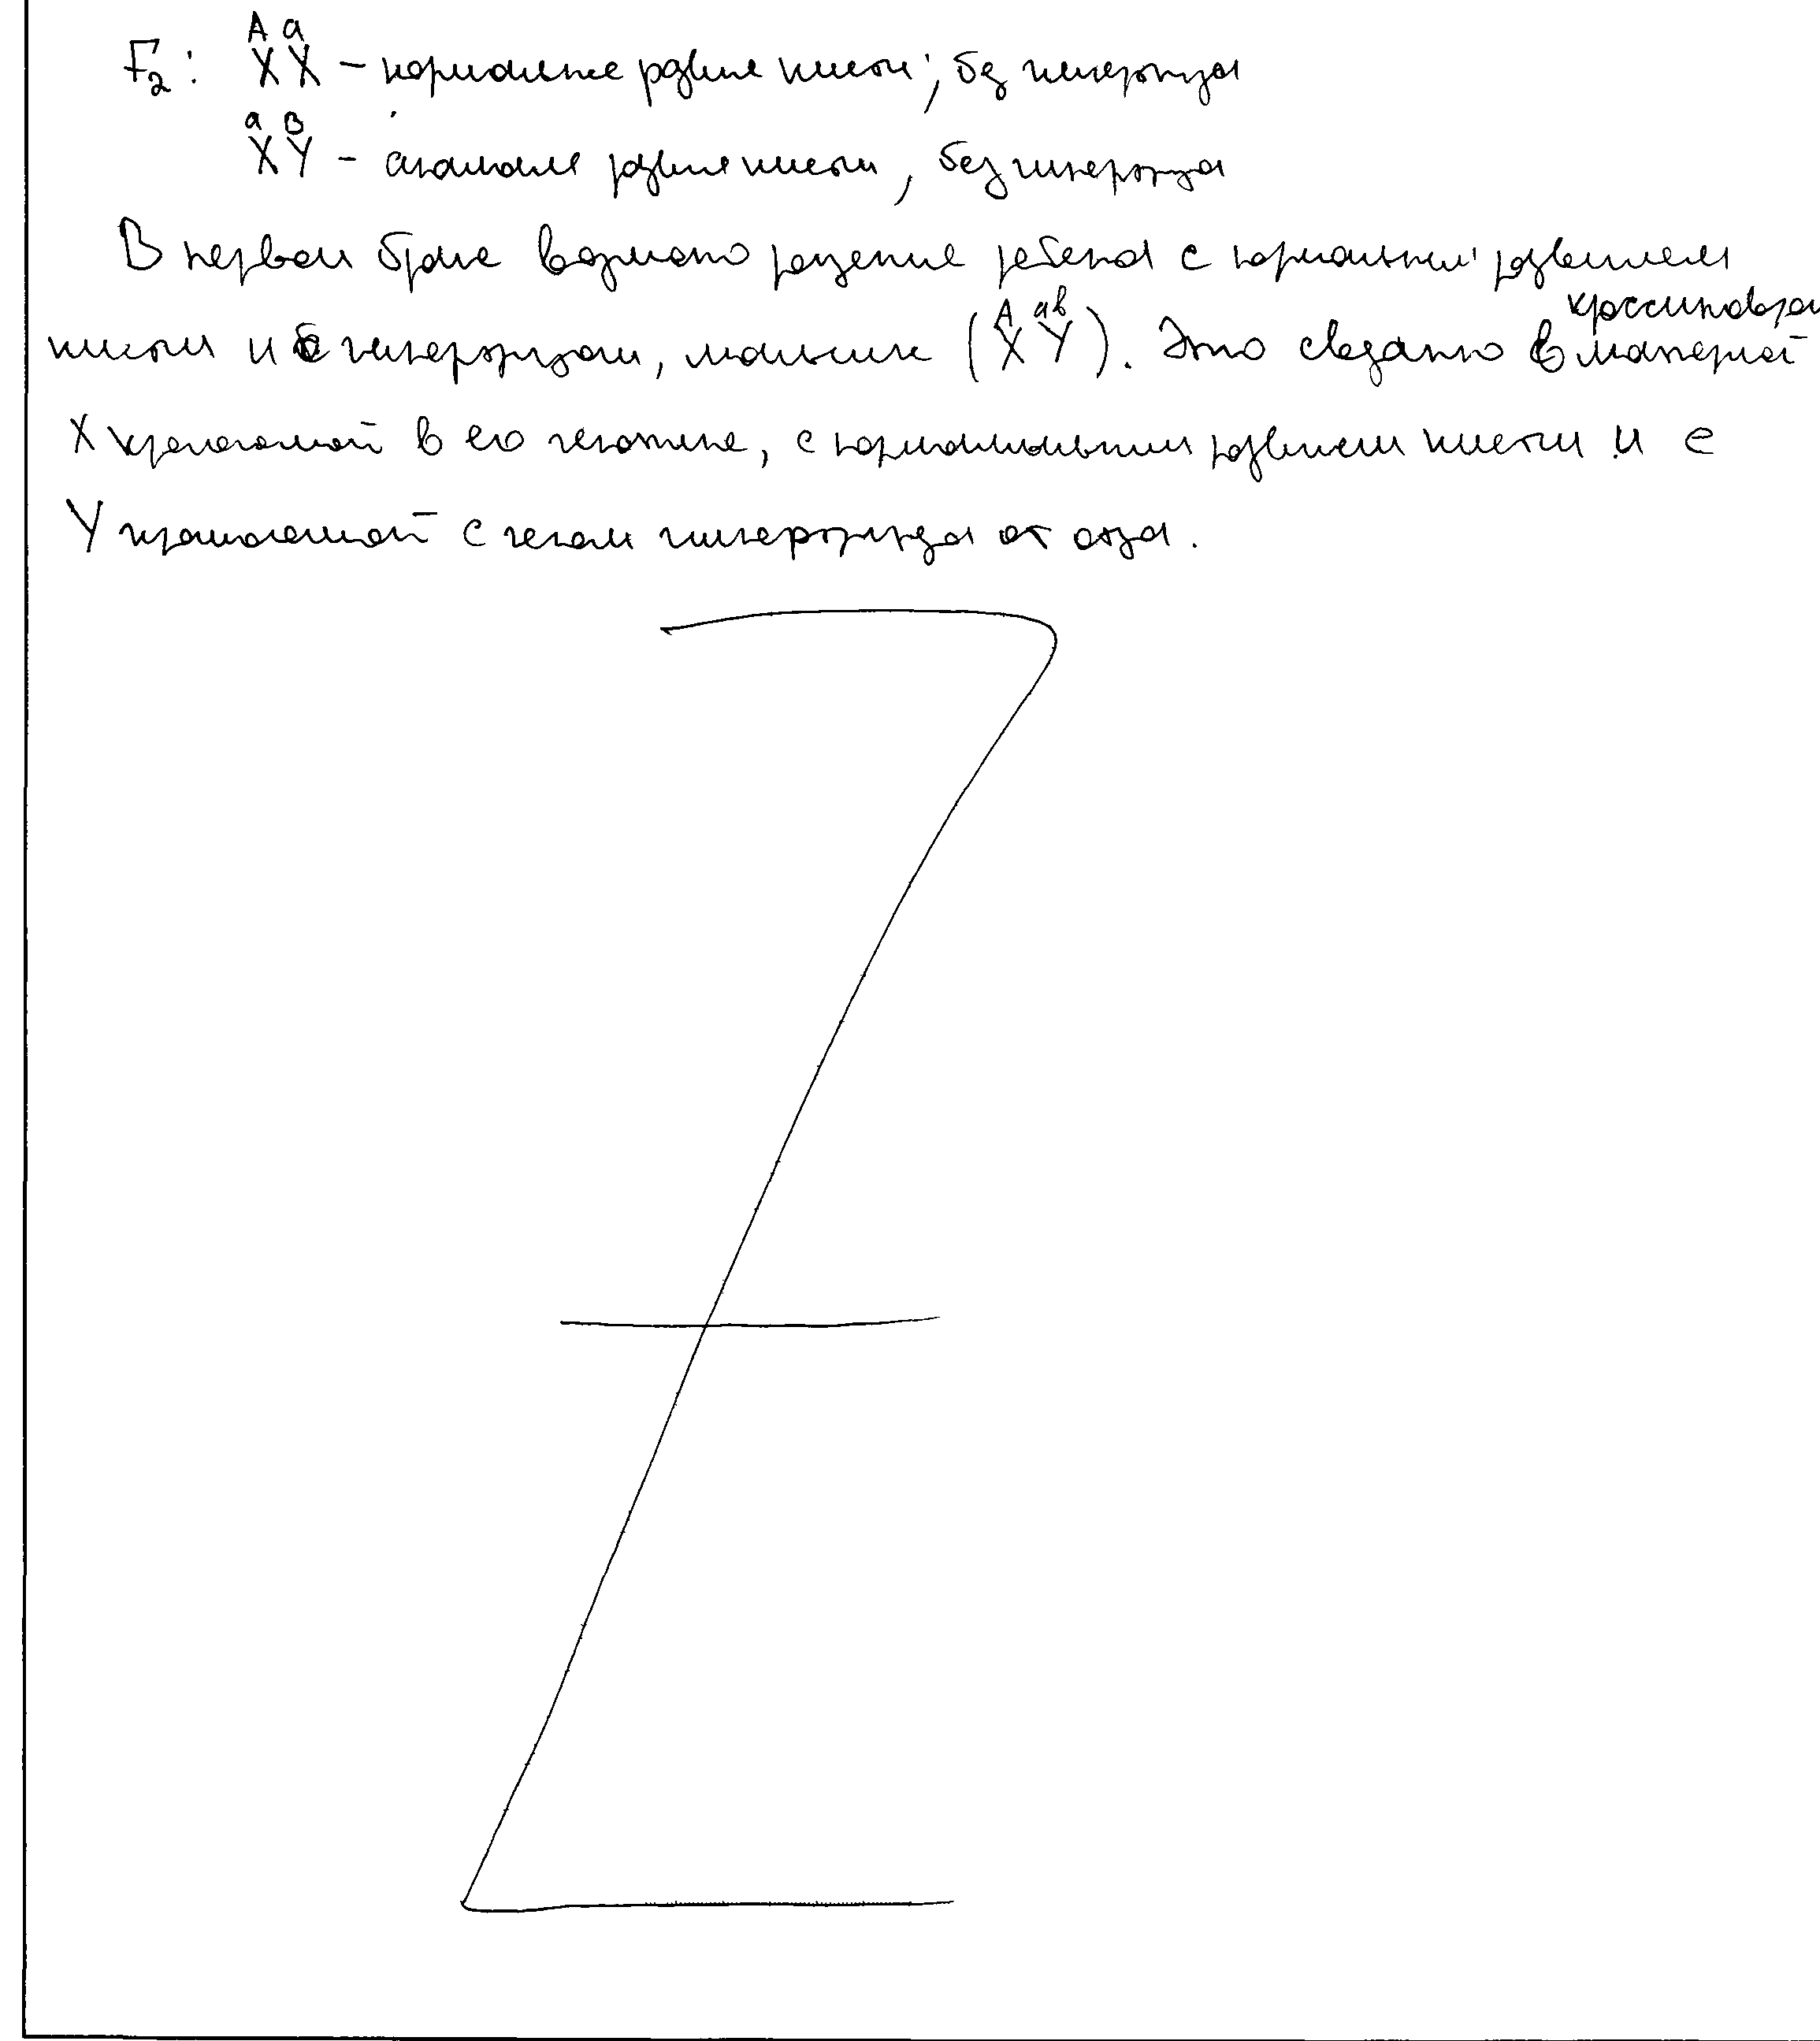 F₂: XᴬXᵃ – нормальное развитие кисти, без гипертрихоза
XᵃYᴮ – аномалия развития кисти, без гипертрихоза
В первом браке возможно рождение ребенка с нормальным развитием
кисти и с гипертрихозом, мальчик (XᴬYᵃᵇ). Это связано в материнской кроссинговером
X хромосомой в его генотипе, с нормальным развитием кисти и с
Y хромосомой с геном гипертрихоза от отца.